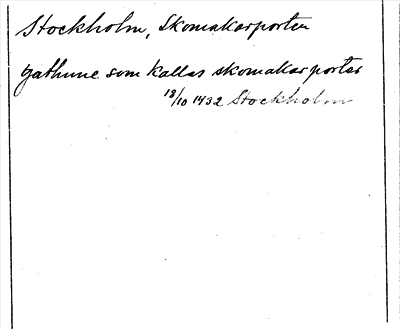 Stockholm, Skomakarporten
gathune som kallas skomakarporter
18/10 1432 Stockholm